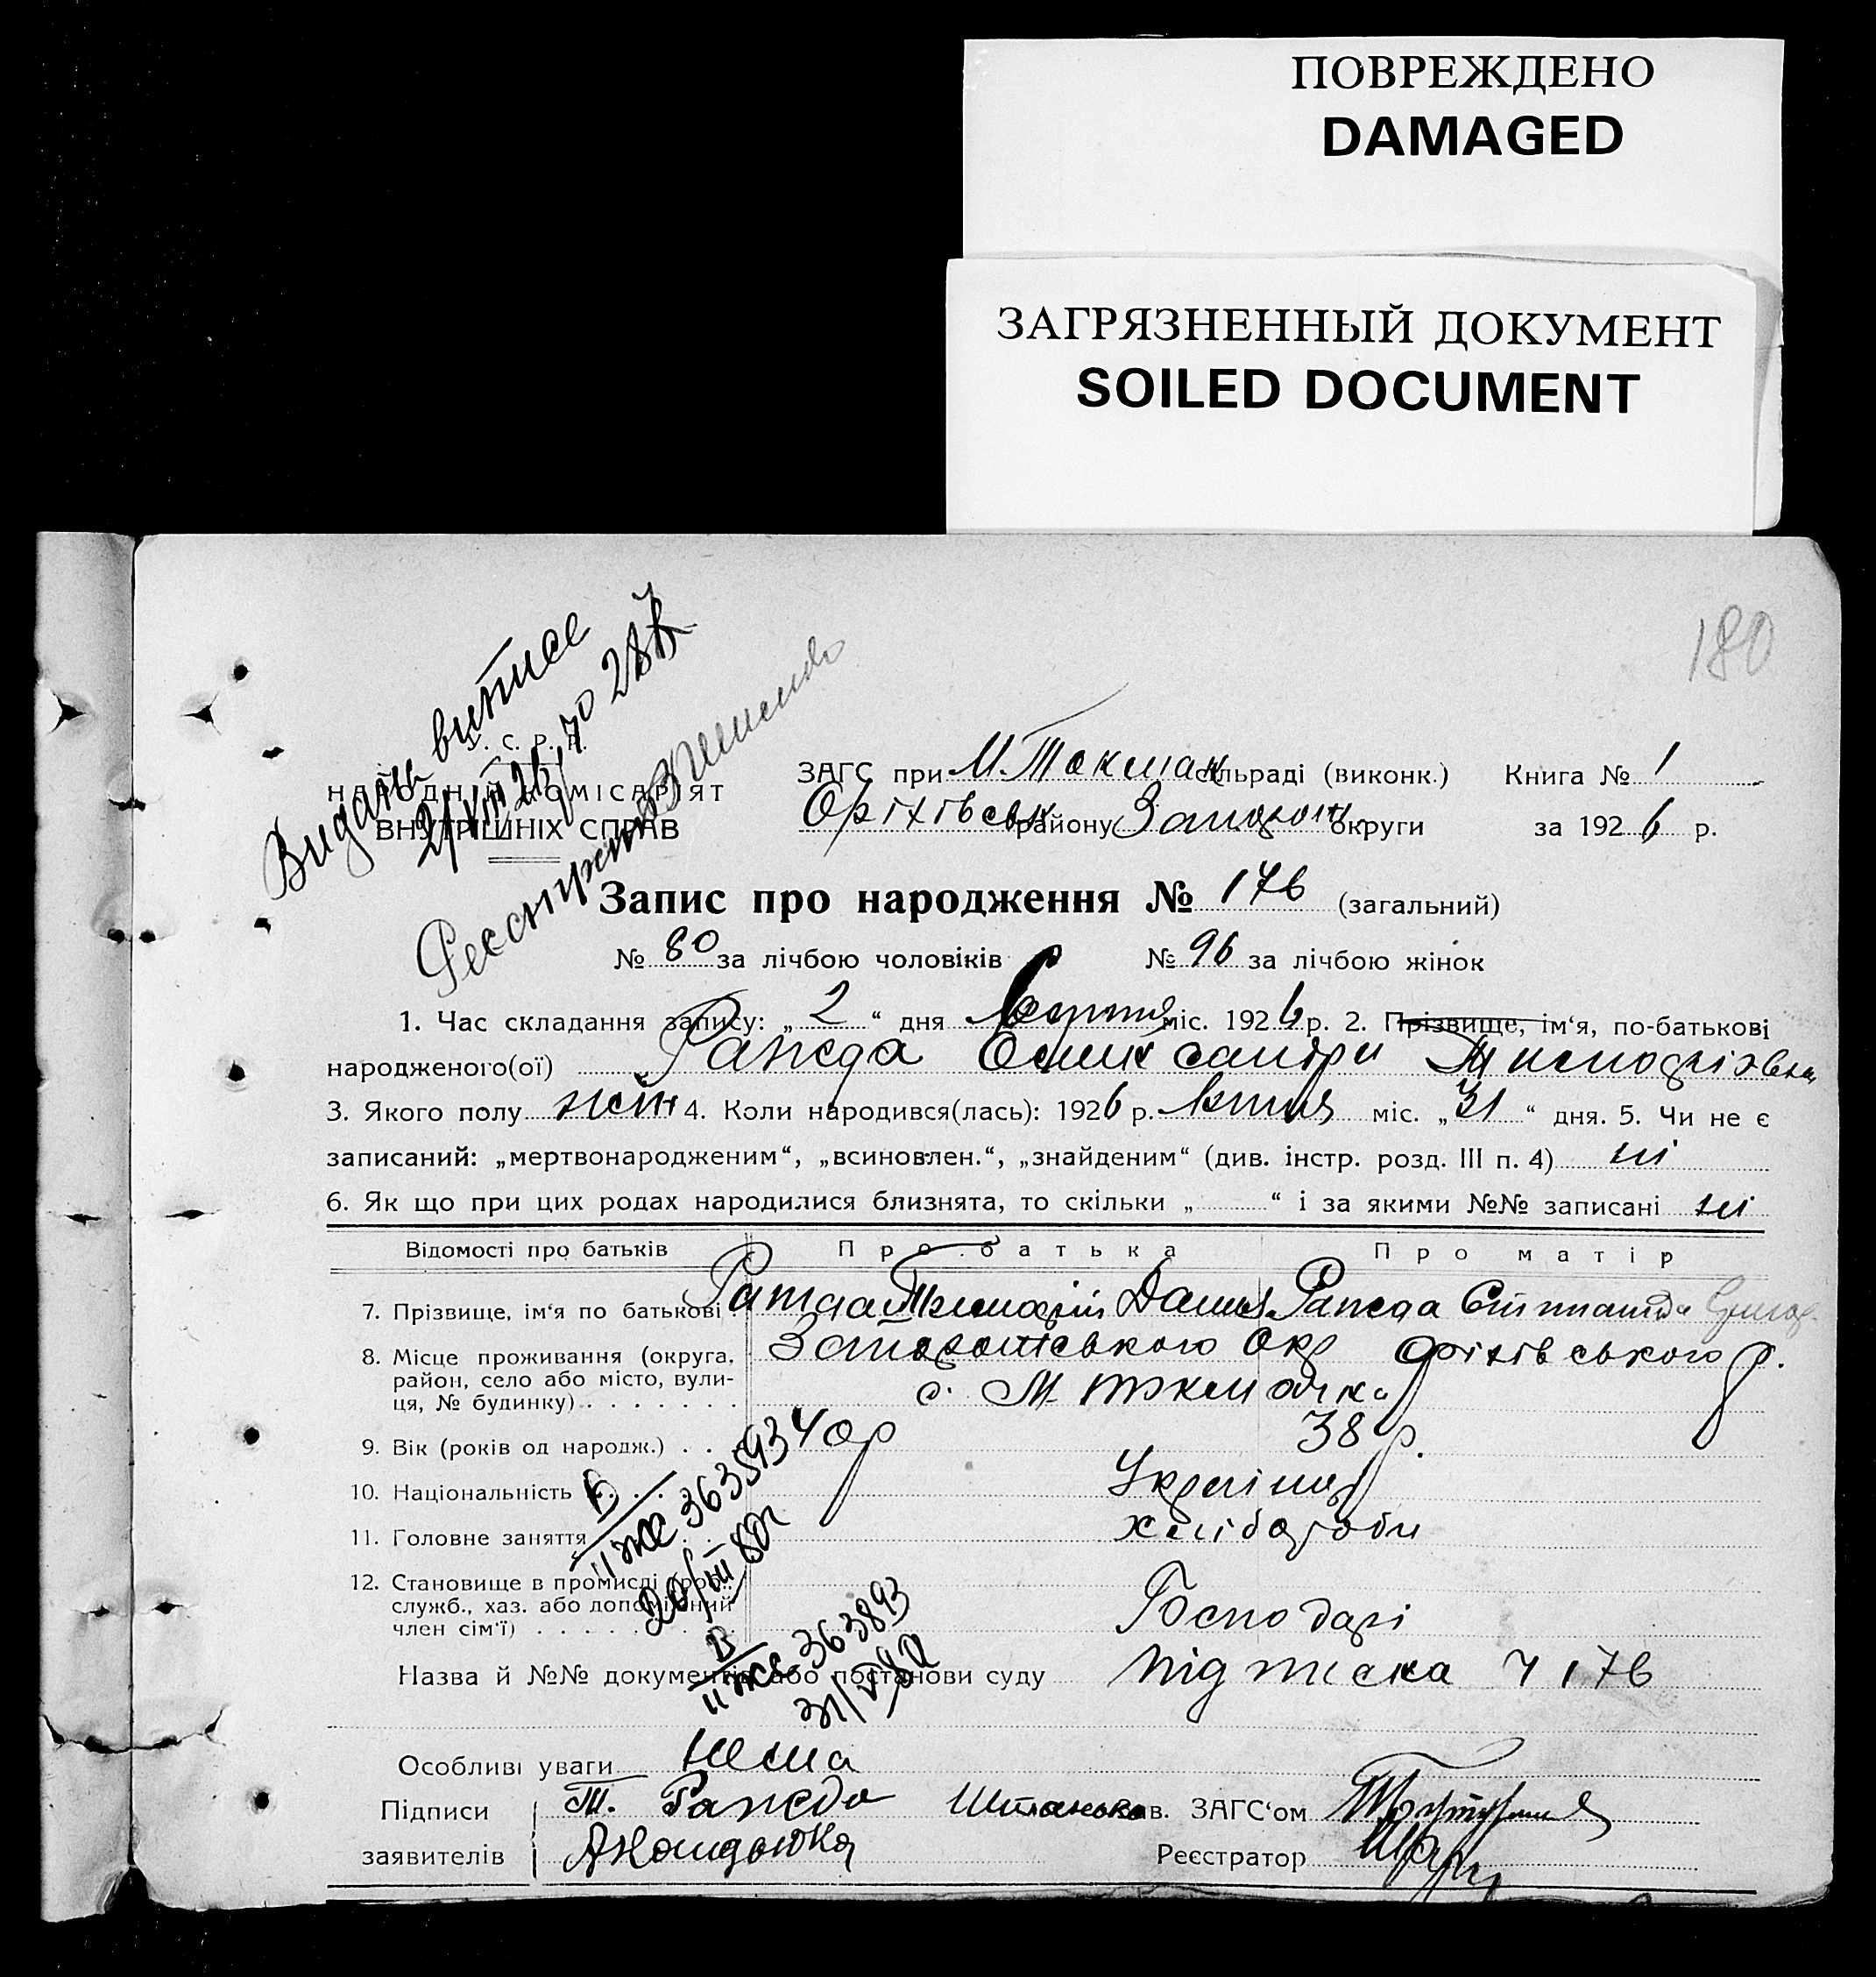 ПОВРЕЖДЕНО
DAMAGED
ЗАГРЯЗНЕННЫЙ ДОКУМЕНТ
SOILED DOCUMENT
180
Видань витис
У. С. Р. Р.
НАРОДНІЙ КОМІСАРІЯТ
ВНУТРІШНІХ СПРАВ
ЗАГС при М. Токмак сільраді (виконк.) Книга № 1
Оріхівськ району Запорож. округи за 1926 р.
Запис про народження № 176 (загальний)
№ 80 за лічбою чоловіків № 96 за лічбою жінок
1. Час складання запису: „ 2 “ дня Серпня міс. 1926 р. 2. Прізвище, ім‘я, по-батькові
народженого(ої) Рапеда Олександри Тимофіївна
3. Якого полу жін 4. Коли народився(лась): 1926 р. липня міс. „ 31 “ дня. 5. Чи не є
записаний: „мертвонародженим“, „всиновлен.“, „знайденим“ (див. інстр. розд. III п. 4) ні
6. Як що при цих родах народилися близнята, то скільки „ “ і за якими №№ записані ні
Відомості про батьків Про батька Про матір
7. Прізвище, ім‘я по батькові Рапеда Тимофій Данил. Рапеда Степанида Григор.
8. Місце проживання (округа, район, село або місто, вулиця, № будинку) Запорожського Окр Оріхівського р.
с. М. Токмачка
9. Вік (років од народж.) 40 р 38 р.
10. Національність Українці
11. Головне заняття хлібороби
12. Становище в промислі (роб., служб., хаз. або допоміжний член сім‘ї) Господарі
II ЖС 363893
Назва й №№ документів або постанови суду підписка ч 176
Особливі уваги Нема
Підписи Т. Рапеда Зав. ЗАГС‘ом
заявителів Реєстратор